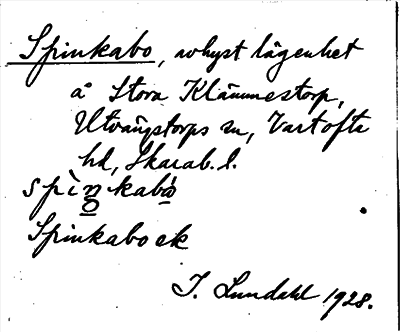 Spinkabo, avhyst lägenhet
å Stora Klämmestorp,
Utvängstorps sn, Vartofta
hd, Skarab. l.
spìŋkabò
Spinkaboek
I. Lundahl 1928.